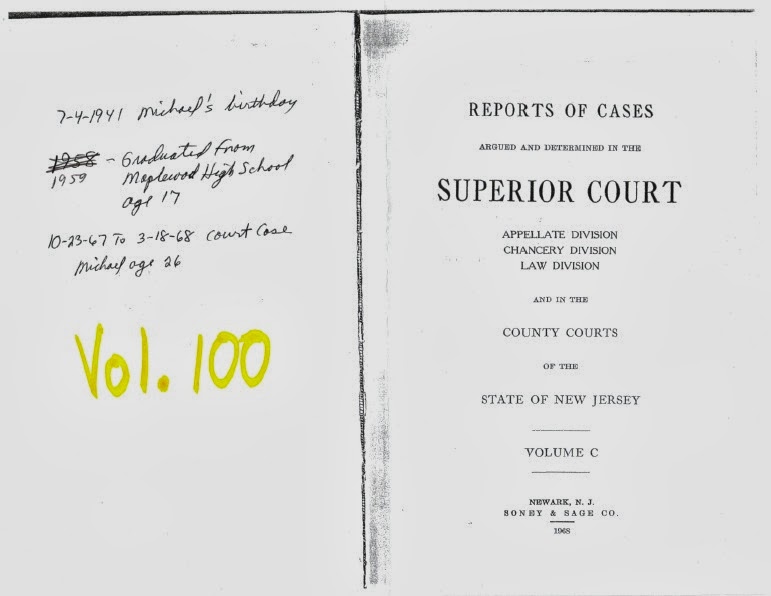 7-4-1941 Michael's birthday
1958 - Graduated From
1959 Maplewood High School
age 17
10-23-67 To 3-18-68 Court Case
Michael age 26
Vol. 100
REPORTS OF CASES
ARGUED AND DETERMINED IN THE
SUPERIOR COURT
APPELLATE DIVISION
CHANCERY DIVISION
LAW DIVISION
AND IN THE
COUNTY COURTS
OF THE
STATE OF NEW JERSEY
VOLUME C
NEWARK, N. J.
SONEY & SAGE CO.
1968